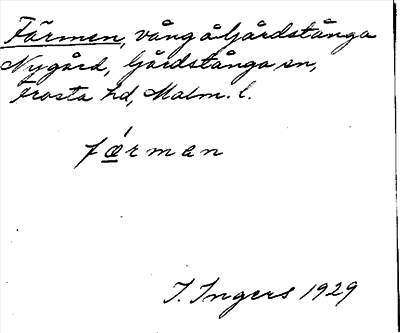 Färmen, vång å Gårdstånga
Nygård, Gårdstånga sn,
Frosta hd, Malm. l.
færman
I. Ingers 1929